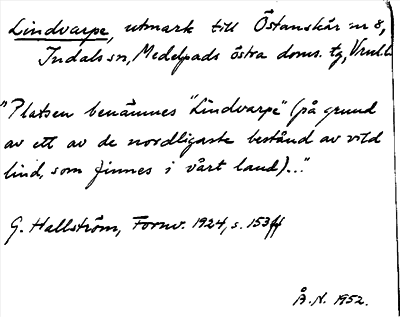 Lindvarpe, utmark till Östanskär nr 8,
Indals sn, Medelpads östra doms. tg, Vnrll.
"Platsen benämnes "Lindvarpe" (på grund
av ett av de nordligaste bestånd av vild
lind, som finnes i vårt land)..."
G. Hallström, Fornv. 1924, s. 153 ff
Å.N. 1952.